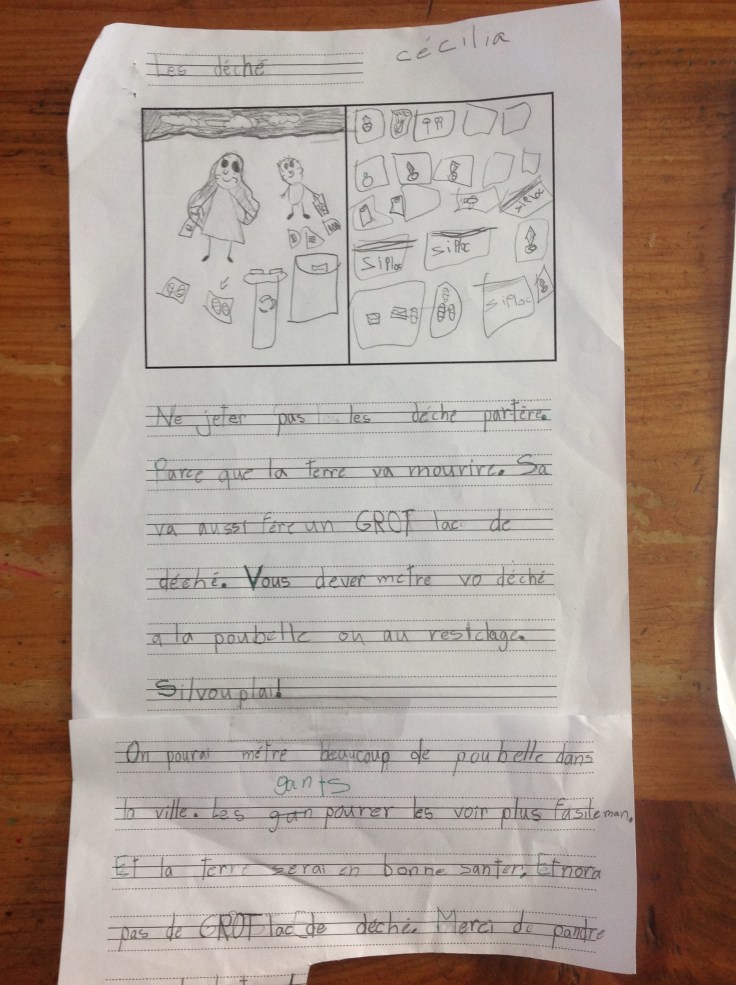 Les déché
cécilia
siploc
siploc
siploc
siploc
Ne jeter pas les déche partère.
Parce que la terre va mourire. Sa
va aussi fère un GROT lac de
déché. Vous dever metre vo déché
a la poubelle ou au resiclage.
Silvouplai!
On pourai métre beaucoup de poubelle dans
gants
la ville. Les gan pourer les voir plus fasileman.
Et la terre serai en bonne santer. Et nora
pas de GROT lac de déché. Merci de pandre